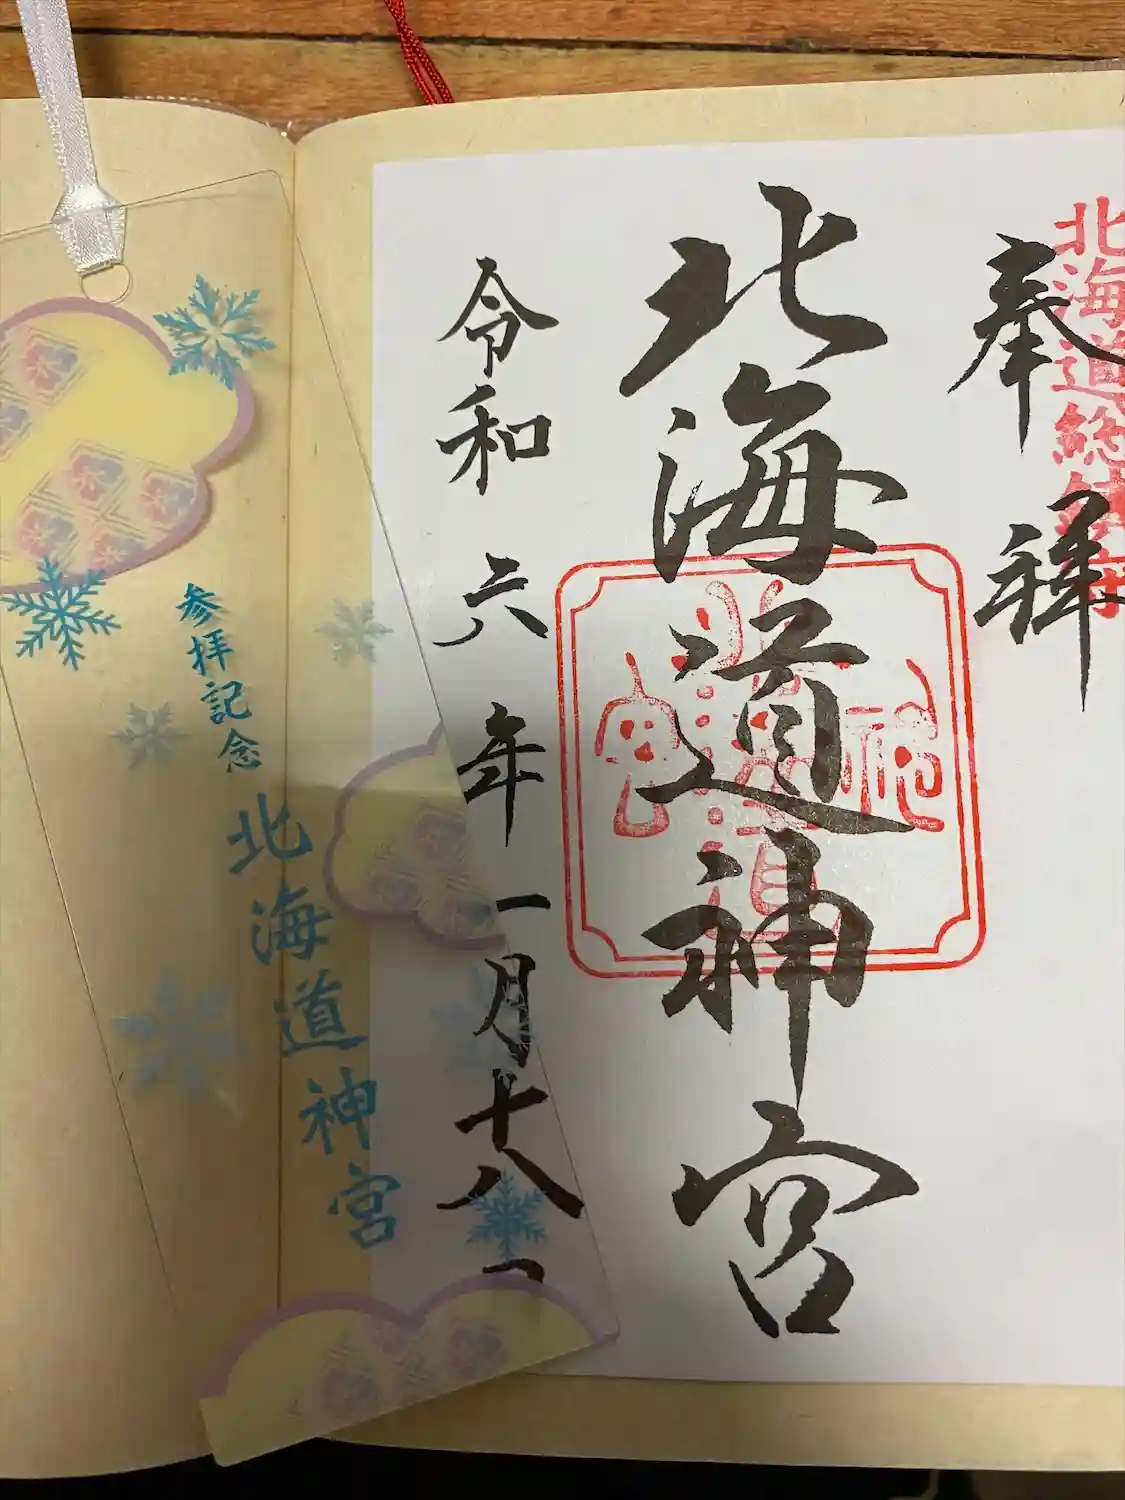 奉拝
北海道総鎮守
北海道神宮
令和六年一月十八日
参拝記念
北海道神宮